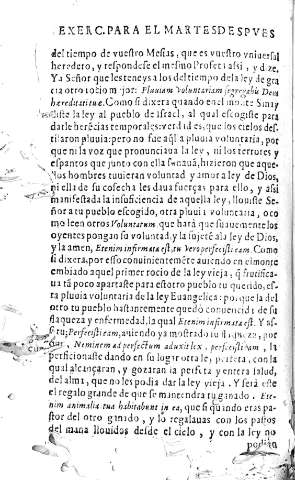 EXERC. PARA EL MARTES DESPVES
del tiempo de vuestro Mesias, que es vuestro vniuersal
heredero, y respondese el mismo Profeta assi, y dize.
Ya Señor que les teneys a los del tiempo de la ley de gra
cia otro rocio mejor: Pluuiam voluntariam segregabis Deus
hereditati tuæ. Como si dixera quando en el monte Sinay
distte la ley al pueblo de Israel, al qual escogiste para
darle herécias temporales: verdad es, que los cielos des-
tilaron pluuia: pero no fue aqlla pluuia voluntaria, por
que ni la voz que pronunciaua la ley, ni los terrores y
espantos que junto con ella sonauã, hizieron que aque-
llos hombres tuuieran voluntad y amor a la ley de Dios,
ni ella de su cosecha les daua fuerças para ello, y assi
manifestada la insuficiencia de aquella ley, llouiste Se-
ñor a tu pueblo escogido, otra pluuia voluntaria, o co
mo leen otros Voluntatum que hará que suauemente los
oyentes pongan su voluntad, y la sujeté a la ley de Dios,
y la amen, Etenim infirmata est, tu vero perfecisti eam. Como
si dixera, por esso conuinientemēte auiendo en el monte
embiado aquel primer rocio de la ley vieja, q̃ fructifica-
ua tã poco apartaste para estotro pueblo tu querido, es-
ta pluuia voluntaria de la ley Euangelica: porque la del
otro tu pueblo bastantemente quedó conuencida de su
flaqueza y enfermedad, la qual Etenim infirmata est. Y as-
si tu, Perfecisti eam, auiendo ya mostrado su flaqueza, por
que, Neminem ad perfectum aduxit lex, perfecisti eam, la
perficionaste dando en su lugar otra ley perfeta, con la
qual alcançaran, y gozaran la perfeta y entera salud,
del alma, que no les podia dar la ley vieja. Y será este
el regalo grande de que se mantendra tu ganado. Ete-
nim animalia tua habitabunt in ea, que si quando eras pa-
stor del otro ganado, y lo regalauas con los pastos
del mana llouidos desde el cielo, y con la ley no
podian